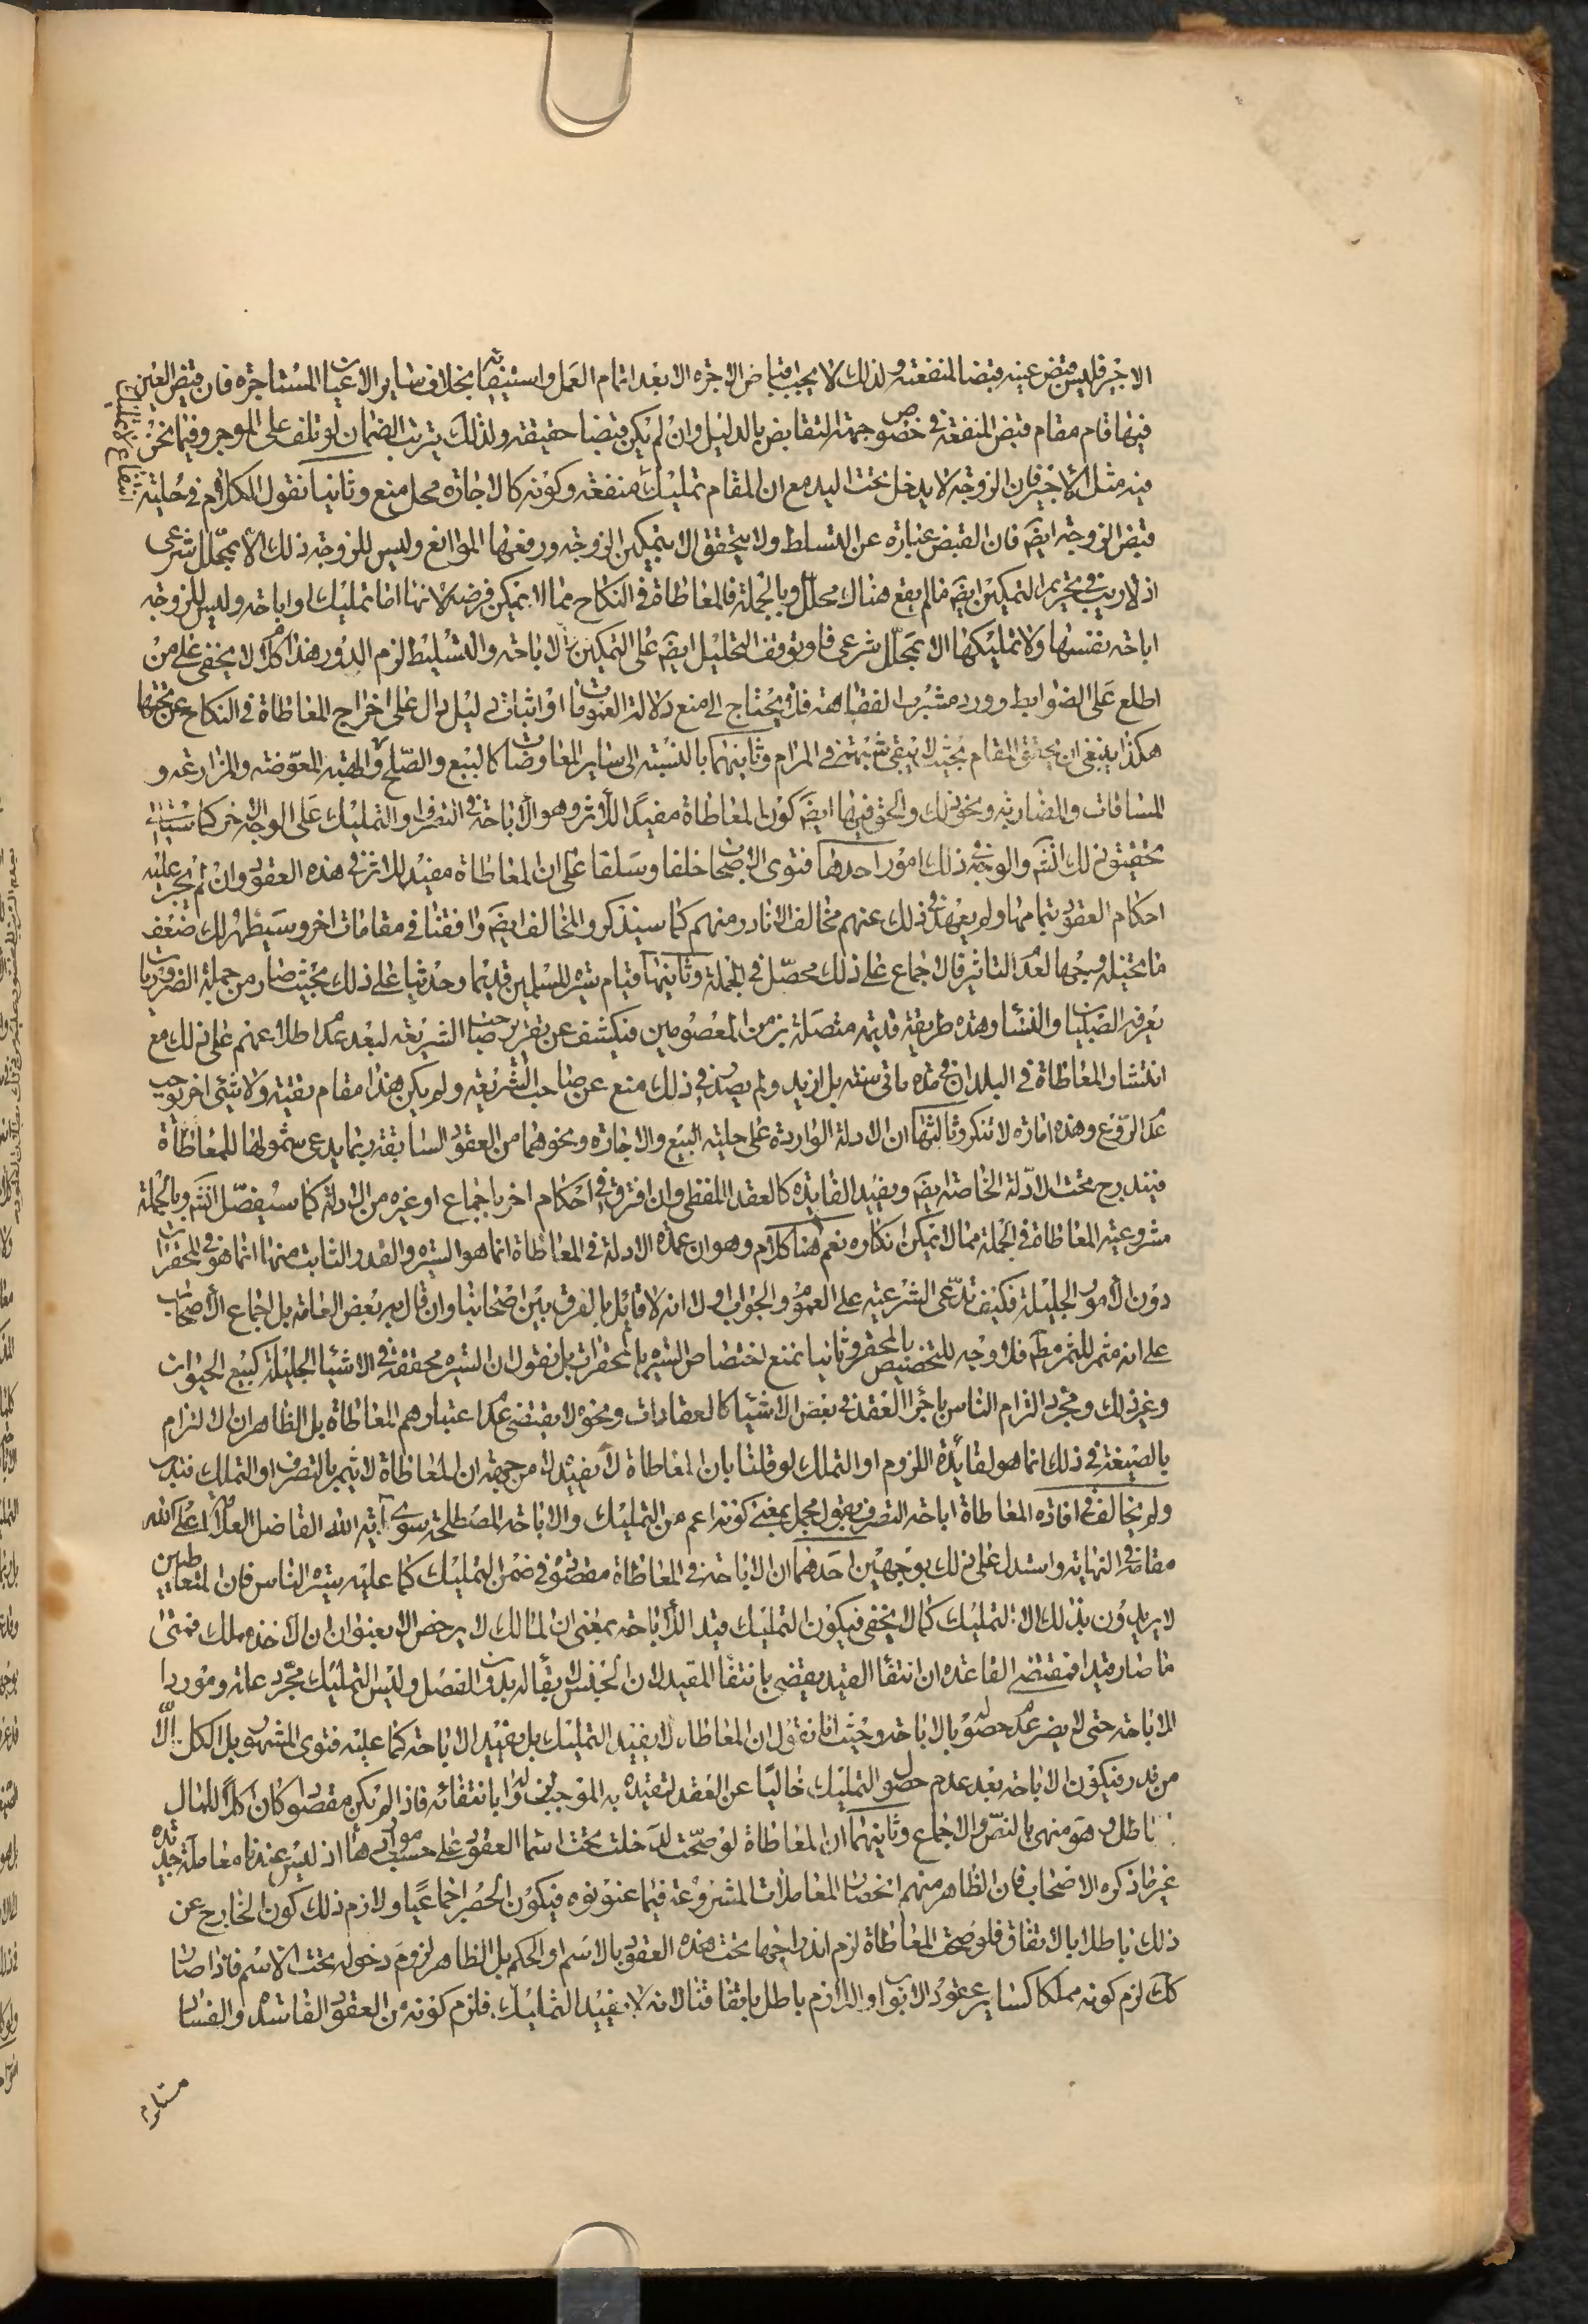 الاجير فليس قبض عينه قبضا لمنفعته ولذلك لا يجب اقباض الاجرة الا بعد اتمام العمل واستيفائه بخلاف ساير الاعيان المستاجرة فان قبض العين
فيها قام مقام قبض المنفعة في خصوص جهة التقابض بالدليل وان لم يكن قبضا حقيقه ولذلك يترتب الضمان لو تلف على الموجر وفيما نحن
فيه مثل الاجير فان الزوجة لا يدخل تحت اليد مع ان المقام تمليك منفعة وكونه كالاجارة محل منع وثانيا نقول الكلام في حلية
قبض الزوجة ايضَ فان القبض عبارة عن التسلط ولا يتحقق الا بتمكين الزوجة ورفعها الموانع وليس للزوجة ذلك الا بمحلل شرعى
اذ لا ريب في تحريم التمكين ايضَ فما لم يقع هناك محلل وبالجملة فالمعاطاة في النكاح مما لا يمكن فرضه لانها اما تمليك او اباحة وليس للزوجة
اباحة نفسها ولا تمليكها الا بمحلل شرعى فلو توقف التحليل ايضَ على التمكين والاباحة والتسليط لزم الدور هذا كله لا يخفى على من
اطلع على الضوابط وورد مشرب الفقاهة فلا يحتاج الى منع دلالة العمومات او اثبات دليل دال على اخراج المعاطاة في النكاح عن تحتها
هكذا ينبغي ان يحقق المقام بحيث لا يبقى شبهة في المرام وثانيهما بالنسبة الى ساير المعاوضات كالبيع والصلح والهبة المعوضة والمزارعة و
المساقات والمضاربة ونحو ذلك والحق فيها ايضَ كون المعاطاة مفيدًا للاثر وهو الاباحة في التصرف او التمليك على الوجه الاخر كما سيأتى
تحقيق ذلك انشَ والوجه في ذلك امور احدها فتوى الاصحاب خلفا وسلفا على ان المعاطاة مفيد للاثر في هذه العقود وان لم يجر عليه
احكام العقود بتمامها ولم يعهد في ذلك عنهم مخالف الا نادر منهم كما سنذكر والمخالف ايضَ وافقنا في مقامات اخر وسيظهر لك ضعف
ما تخيله وجها لعدم التاثير فالاجماع على ذلك محصّل في الجملة وثانيها قيام سيرة المسلمين قديما وحديثا على ذلك بحيث صار من جملة الضروريات
يعرفه الصبيان والنساء وهذه طريقة قديمة متصلة بزمن المعصومين فيكشف عن تقرير صاحب الشريعة لبعد عدم اطلاعهم على ذلك مع
انتشار المعاطاة في البلدان في مدة ماتى سنة بل ازيد ولم يصدر في ذلك منع عن صاحب الشريعة ولم يكن هذا مقام تقية ولا شئى اخر يوجب
عدم الردع وهذه امارة لا تنكر وثالثها ان الادلة الواردة على حلية البيع والاجارة ونحوهما من العقود السابقة ربما يدعى شمولها للمعاطاة
فيندرج تحت الادلّة الخاصة ايضَ ويفيد الفايدة كالعقد اللفظى وان افترق في احكام اخر باجماع او غيره من الادلة كما سيفصّل انشَ وبالجملة
مشروعية المعاطاة في الجملة مما لا يمكن انكاره نعم هنا كلام وهو ان عمدة الادلة في المعاطاة انما هو السيرة والقدر الثابت منها انما هو في المحقرات
دون الامور الجليلة فكيف تدّعى الشرعية على العموم والجواب اولا انه لا قائل بالفرق بين اصحابنا وان قال به بعض العامة بل اجماع الاصحاب
على انه مثمر للثمر مطَ فلا وجه للتخصيص بالمحقر وثانيا نمنع اختصاص السيرة بالمحقرات بل نقول ان السيرة محققة في الاشياء الجليلة كبيع الحيوان
وغير ذلك ومجرد التزام الناس باجراء العقد في بعض الاشياء كالعقارات ونحوه لا يقتضى عدم اعتبارهم المعاطاة بل الظاهر ان الالتزام
بالصيغة في ذلك انما هو لفائدة اللزوم او التملك لو قلنا بان المعاطاة لا يفيده لا من جهة ان المعاطاة لا يثمر بالتصرف او التملك فتدبر
ولم يخالف في افادة المعاطاة اباحة التصرف بقول مجمل بمعنى كونه اعم من التمليك والاباحة المصطلحة سوى آية الله الفاضل العلامة اعلى الله
مقامه في النهاية واستدل على ذلك بوجهين احدهما ان الاباحة في المعاطاة مقصود في ضمن التمليك كما عليه سيرة الناس فان المتعاطيين
لا يريدون بذلك الا التمليك كما لا يخفى فيكون التمليك قيدا للاباحة بمعنى ان المالك لا يرخص الا بعنوان ان الاخذ مملك فمتى
ما صار قيدا فمقتضى القاعدة ان انتفاء القيد يقضى بانتفاء المقيد لان الجنس لا بقاء له بدون الفصل وليس التمليك مجرد علة وموردا
للاباحة حتى لا يضر عدم حصوله بالاباحة وحيث انا نقول ان المعاطاة لا يفيد التمليك بل يفيد الاباحة كما عليه فتوى المشهور بل الكل الّا
من ندر فيكون الاباحة بعد عدم حصول التمليك خاليًا عن العقد لتقيده به الموجب لزواله بانتفائه فاذا لم يكن مقصودا كان اكلا للمال
باطلا وهو منهى بالنصّ والاجماع وثانيهما ان المعاطاة لو صحّت لدخلت تحت اسماء العقود على حسب مواردها اذ ليس عندنا معاملة جديدة
غير ما ذكره الاصحاب فان الظاهر منهم انحصار المعاملات المشروعة فيما عنونوه فيكون الحصر اجماعيًا ولازم ذلك كون الخارج عن
ذلك باطلا بالاتفاق فلو صحت المعاطاة لزم اندراجها تحت هذه العقود بالاسم او الحكم بل الظاهر لزوم دخوله تحت الاسم فاذا صار
كلّ لزم كونه مملكا كساير عقود الابواب واللازم باطل باتفاقنا لانه لا يفيد التمليك فلزم كونه من العقود الفاسدة والفساد
مستلزم